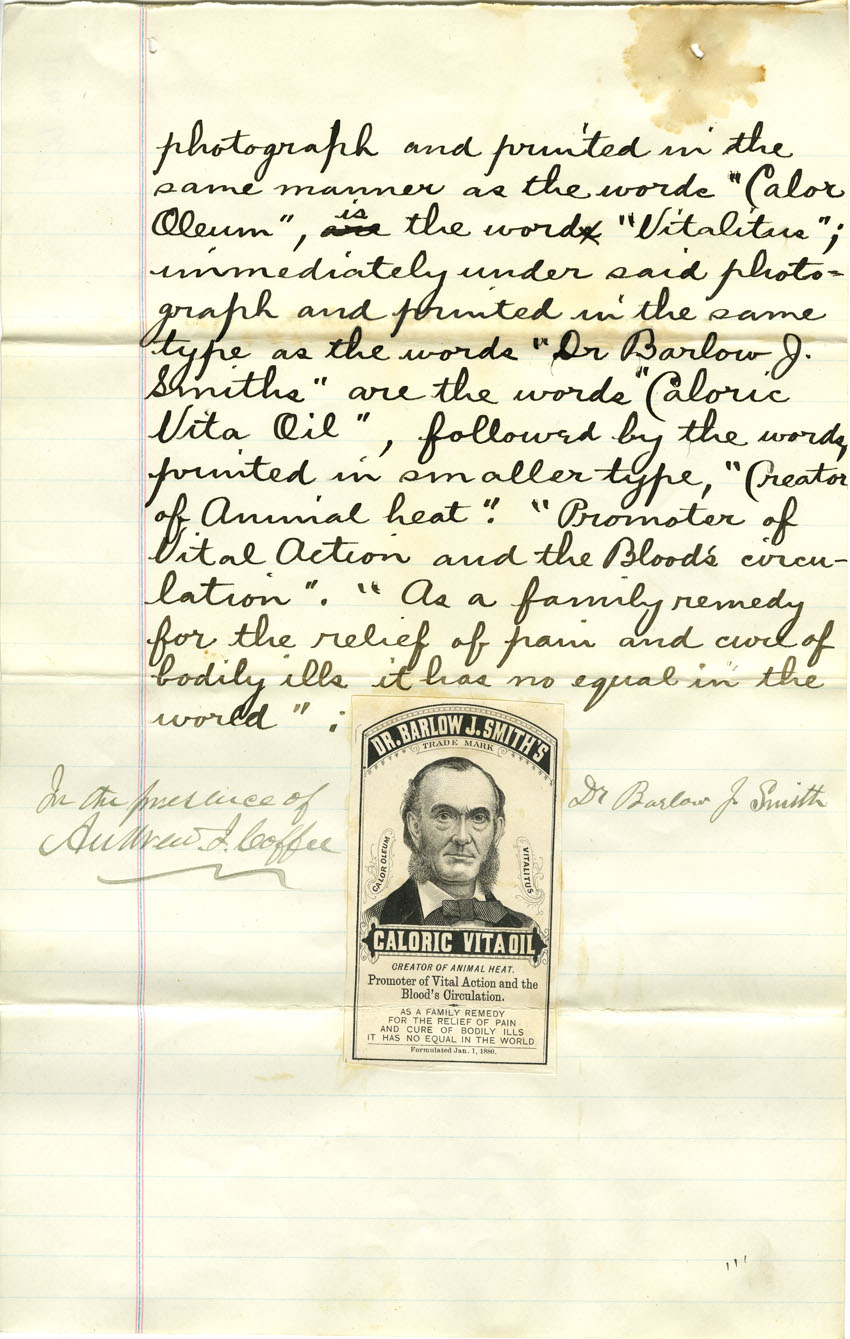 photograph and printed in the
same manner as the words "Calor
Oleum", are is the words "Vitalitus";
immediately under said photo-
graph and printed in the same
type as the words "Dr Barlow J.
Smiths" are the words "Caloric
Vita Oil", followed by the words,
printed in smaller type, "Creator
of Animal heat". "Promoter of
Vital Action and the Blood's circu-
lation". "As a family remedy
for the relief of pain and cure of
bodily ills it has no equal in the
world";
In the presence of
Andrew J. Coffee
Dr Barlow J. Smith
DR. BARLOW J. SMITH'S
TRADE MARK
CALOR OLEUM
VITALITUS
CALORIC VITA OIL
CREATOR OF ANIMAL HEAT.
Promoter of Vital Action and the
Blood's Circulation.
AS A FAMILY REMEDY
FOR THE RELIEF OF PAIN
AND CURE OF BODILY ILLS
IT HAS NO EQUAL IN THE WORLD
Formulated Jan. 1, 1880.